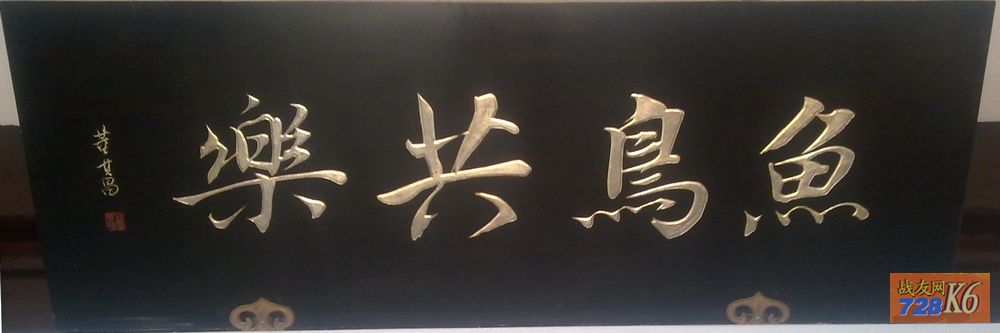 魚鳥共樂
董其昌
战友网
728K6